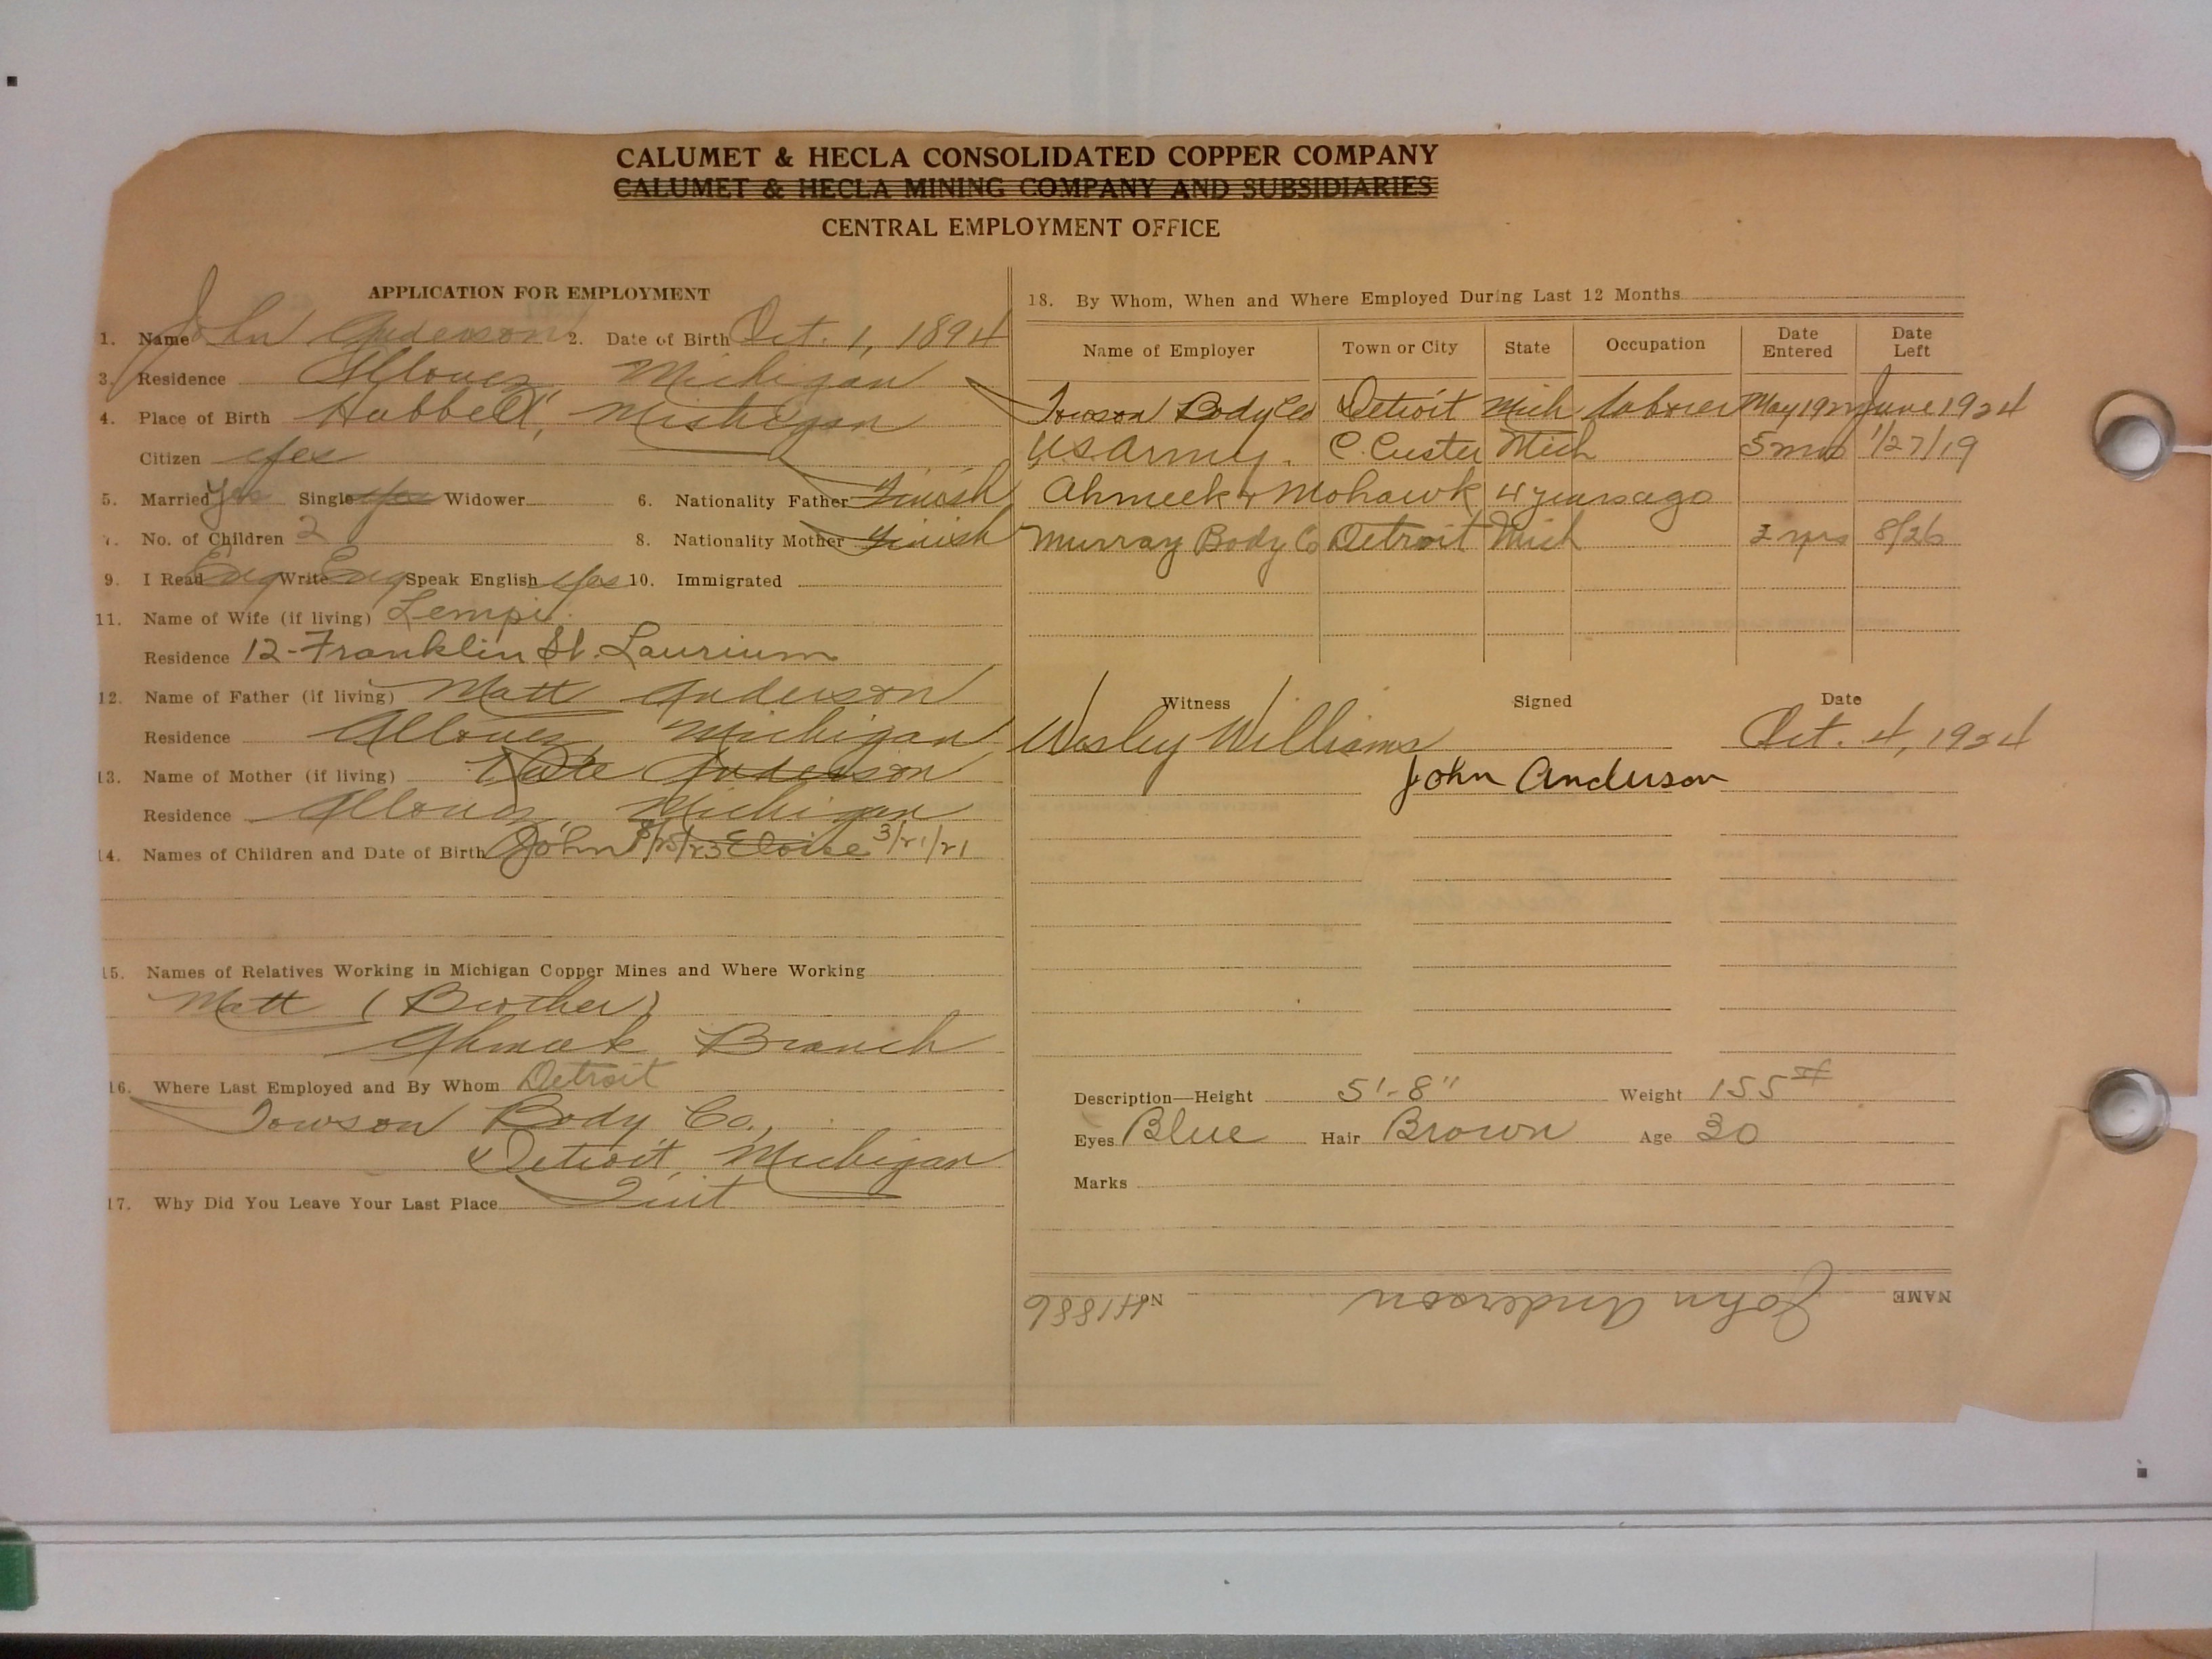 CALUMET & HECLA CONSOLIDATED COPPER COMPANY
CALUMET & HECLA MINING COMPANY AND SUBSIDIARIES
CENTRAL EMPLOYMENT OFFICE
APPLICATION FOR EMPLOYMENT
1. Name John Anderson 2. Date of Birth Oct. 1, 1894
3. Residence Allouez, Michigan
4. Place of Birth Hubbell, Michigan
Citizen Yes
5. Married Yes Single Yes Widower 6. Nationality Father Finish
7. No. of Children 2 8. Nationality Mother Finish
9. I Read Eng Write Eng Speak English Yes 10. Immigrated
11. Name of Wife (if living) Lempi
Residence 12-Franklin St. Laurium
12. Name of Father (if living) Matt Anderson
Residence Allouez Michigan
13. Name of Mother (if living) Kate Anderson
Residence Allouez, Michigan
14. Names of Children and Date of Birth John 8/25/23 Eloise 3/21/21
15. Names of Relatives Working in Michigan Copper Mines and Where Working
Matt (Brother)
Ahmeek Branch
16. Where Last Employed and By Whom Detroit
Towson Body Co.,
Detroit, Michigan
17. Why Did You Leave Your Last Place Quit
18. By Whom, When and Where Employed During Last 12 Months
Name of Employer Town or City State Occupation Date Entered Date Left
Towson Body Co Detroit Mich laborer May 1922 June 1924
U S Army. C. Custer Mich 5 mos 1/27/19
Ahmeek & Mohawk 4 years ago
Murray Body Co Detroit Mich 2 yrs 8/26
Witness Signed Date
Wesley Williams Oct. 4, 1924
John Anderson
Description—Height 5'-8" Weight 155#
Eyes Blue Hair Brown Age 30
Marks
NAME John Anderson No. H1886